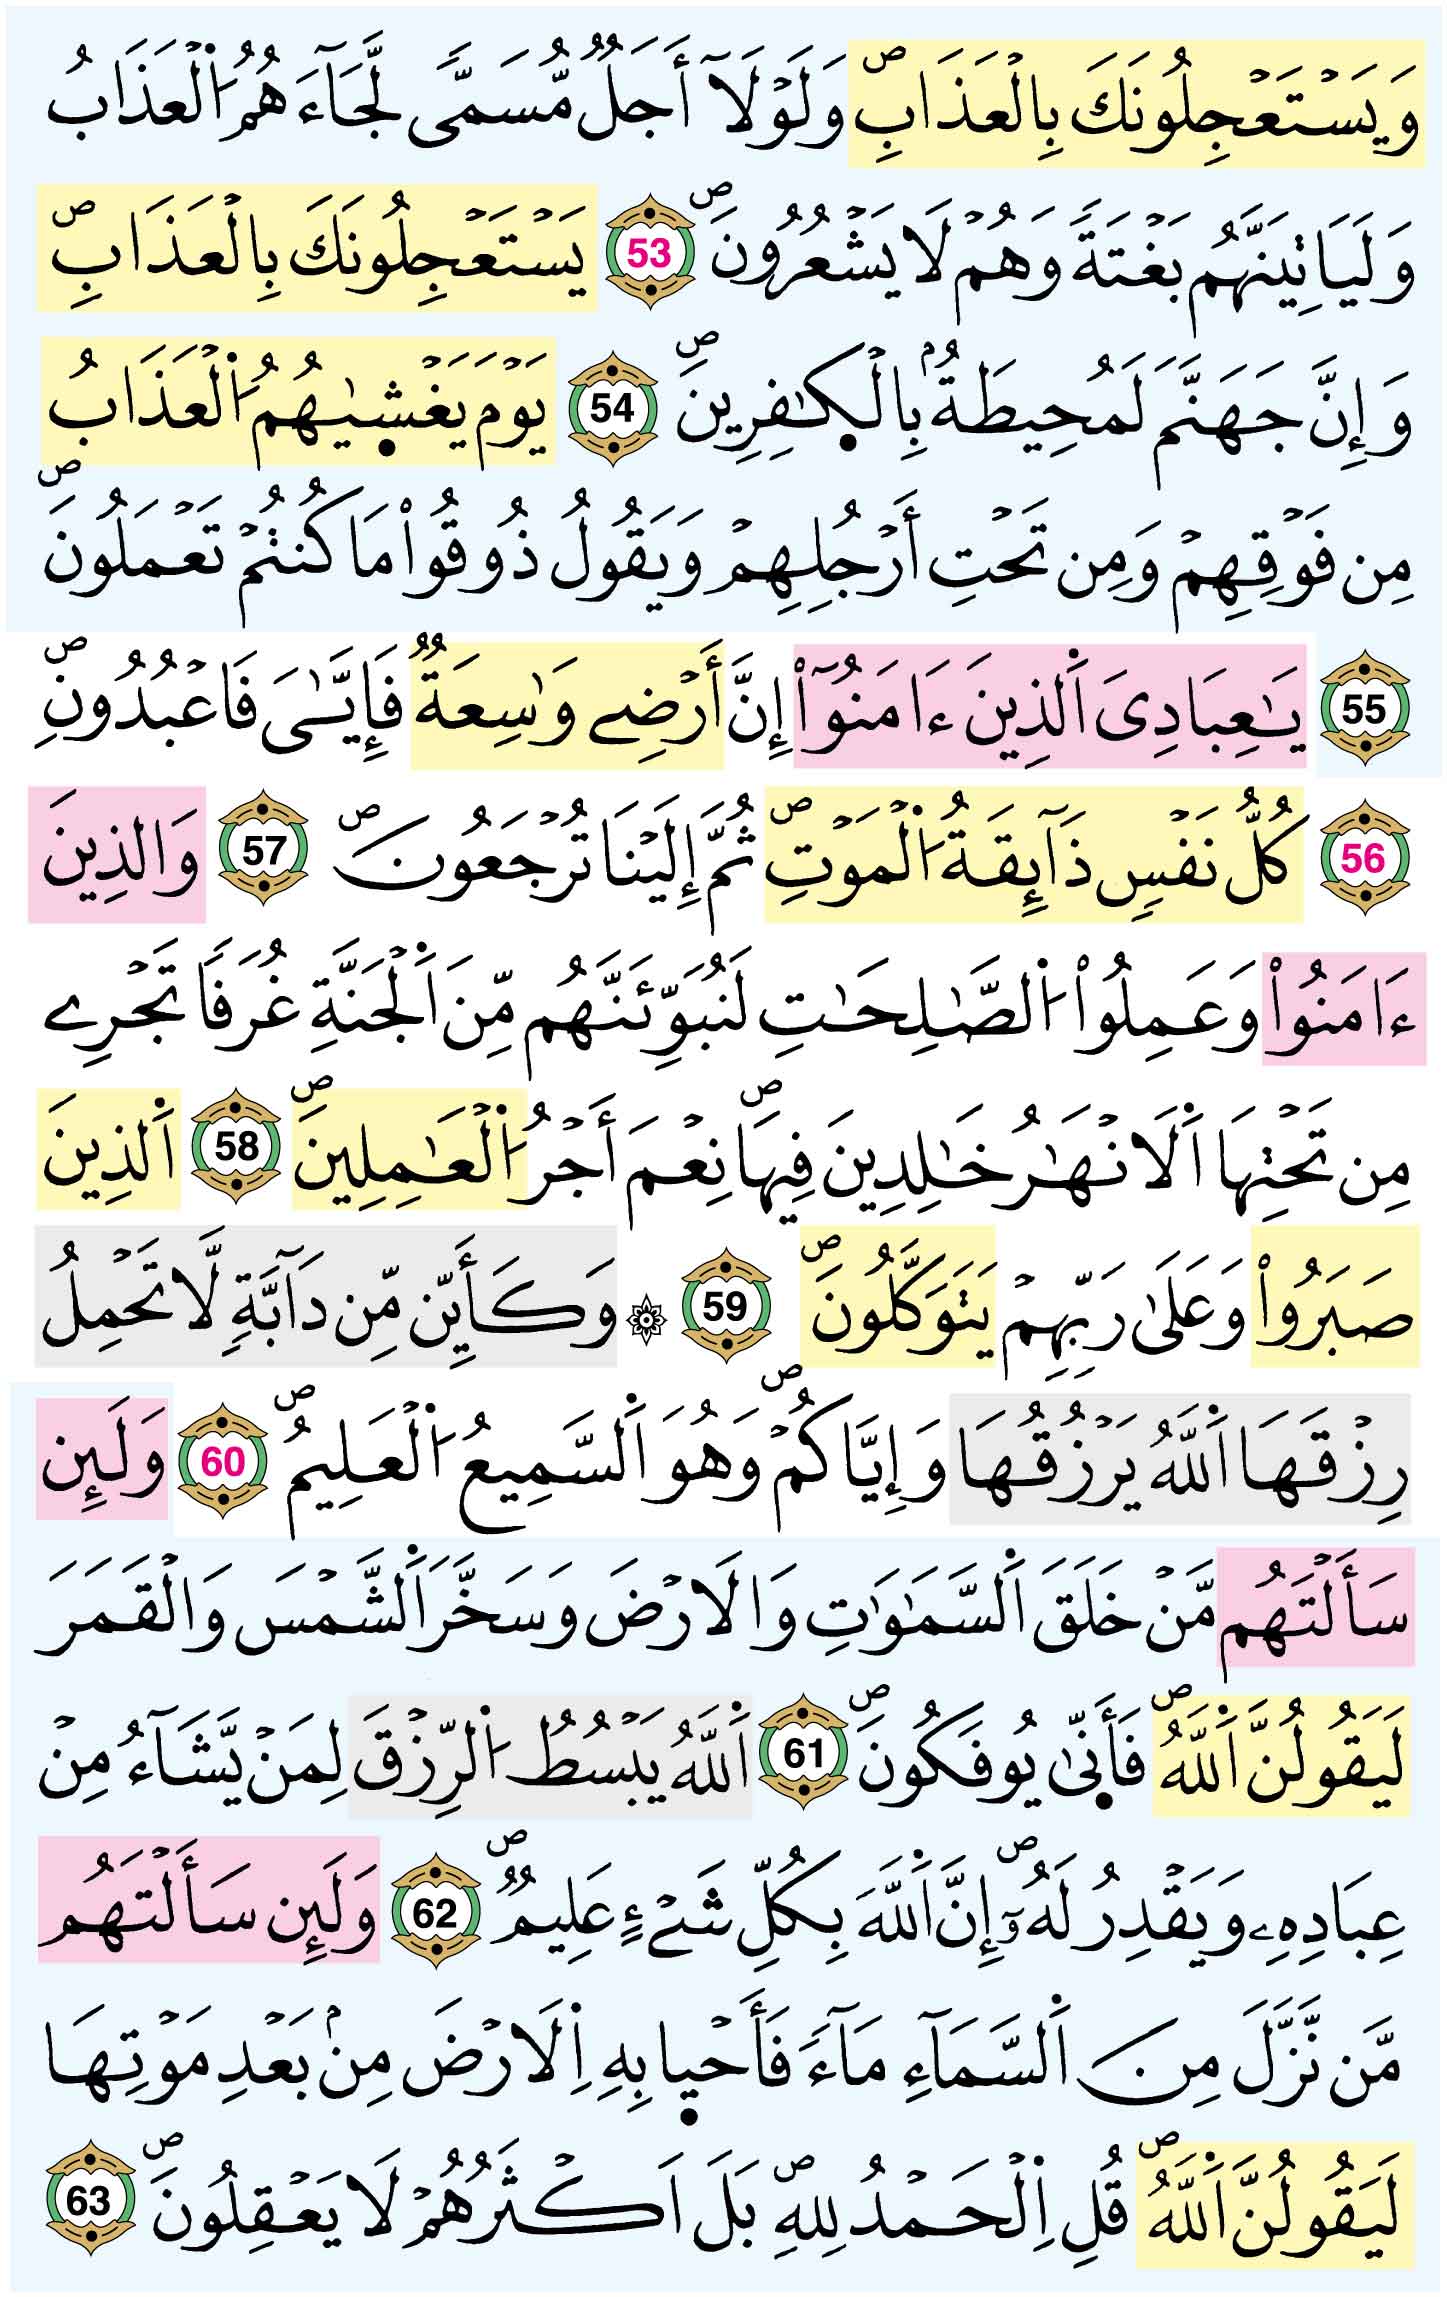 وَيَسْتَعْجِلُونَكَ بِالْعَذَابِۖ وَلَوْلَآ أَجَلٌ مُّسَمًّى لَّجَآءَهُمُ اُ۬لْعَذَابُ
وَلَيَاتِيَنَّهُم بَغْتَةً وَهُمْ لَا يَشْعُرُونَۖ 53 يَسْتَعْجِلُونَكَ بِالْعَذَابِۖ
وَإِنَّ جَهَنَّمَ لَمُحِيطَةُۢ بِالْكٰ۪فِرِينَۖ 54 يَوْمَ يَغْشٰ۪يهُمُ اُ۬لْعَذَابُ
مِن فَوْقِهِمْ وَمِن تَحْتِ أَرْجُلِهِمْ وَيَقُولُ ذُوقُواْ مَا كُنتُمْ تَعْمَلُونَۖ
55 يَٰعِبَادِىَ اَ۬لذِينَ ءَامَنُوٓاْ إِنَّ أَرْضِے وَٰسِعَةٌ فَإِيَّٰىَ فَاعْبُدُونِۖ
56 كُلُّ نَفْسٍ ذَآئِقَةُ اُ۬لْمَوْتِۖ ثُمَّ إِلَيْنَا تُرْجَعُونَۖ 57 وَالذِينَ
ءَامَنُواْ وَعَمِلُواْ اُ۬لصَّٰلِحَٰتِ لَنُبَوِّئَنَّهُم مِّنَ اَ۬لْجَنَّةِ غُرَفاً تَجْرِے
مِن تَحْتِهَا اَ۬لَانْهَٰرُ خَٰلِدِينَ فِيهَاۖ نِعْمَ أَجْرُ اُ۬لْعَٰمِلِينَۖ 58 اَ۬لذِينَ
صَبَرُواْ وَعَلَىٰ رَبِّهِمْ يَتَوَكَّلُونَۖ 59 ۞ وَكَأَيِّن مِّن دَآبَّةٍ لَّا تَحْمِلُ
رِزْقَهَا اَ۬للَّهُ يَرْزُقُهَا وَإِيَّاكُمْۖ وَهُوَ اَ۬لسَّمِيعُ اُ۬لْعَلِيمُۖ 60 وَلَئِن
سَأَلْتَهُم مَّنْ خَلَقَ اَ۬لسَّمَٰوَٰتِ وَالَارْضَ وَسَخَّرَ اَ۬لشَّمْسَ وَالْقَمَرَ
لَيَقُولُنَّ اَ۬للَّهُۖ فَأَنّ۪ىٰ يُوفَكُونَۖ 61 اَ۬للَّهُ يَبْسُطُ اُ۬لرِّزْقَ لِمَنْ يَّشَآءُ مِنْ
عِبَادِهِۦ وَيَقْدِرُ لَهُۥٓۖ إِنَّ اَ۬للَّهَ بِكُلِّ شَےْءٍ عَلِيمٌۖ 62 وَلَئِن سَأَلْتَهُم
مَّن نَّزَّلَ مِنَ اَ۬لسَّمَآءِ مَآءً فَأَحْي۪ا بِهِ اِ۬لَارْضَ مِنۢ بَعْدِ مَوْتِهَا
لَيَقُولُنَّ اَ۬للَّهُۖ قُلِ اِ۬لْحَمْدُ لِلهِۖ بَلَ اَكْثَرُهُمْ لَا يَعْقِلُونَۖ 63